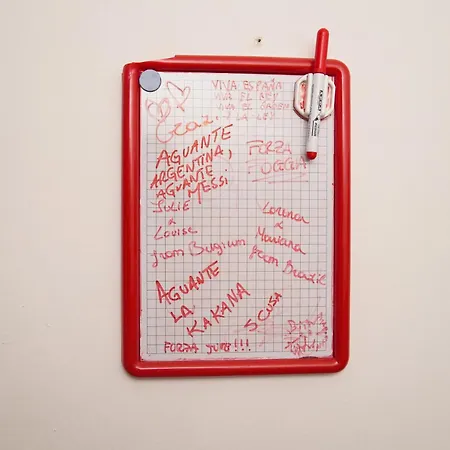 VIVA ESPAÑA
VIVA EL REY
Y LA LEY
AGUANTE
ARGENTINA,
AGUANTE
MESSI
FORZA
FOGGIA
JULIE
&
Louise
from Belgium
Lorena
&
Mariana
from Brazil
AGUANTE
LA
KAKANA
SCUSA
FORZA JUVE!!!